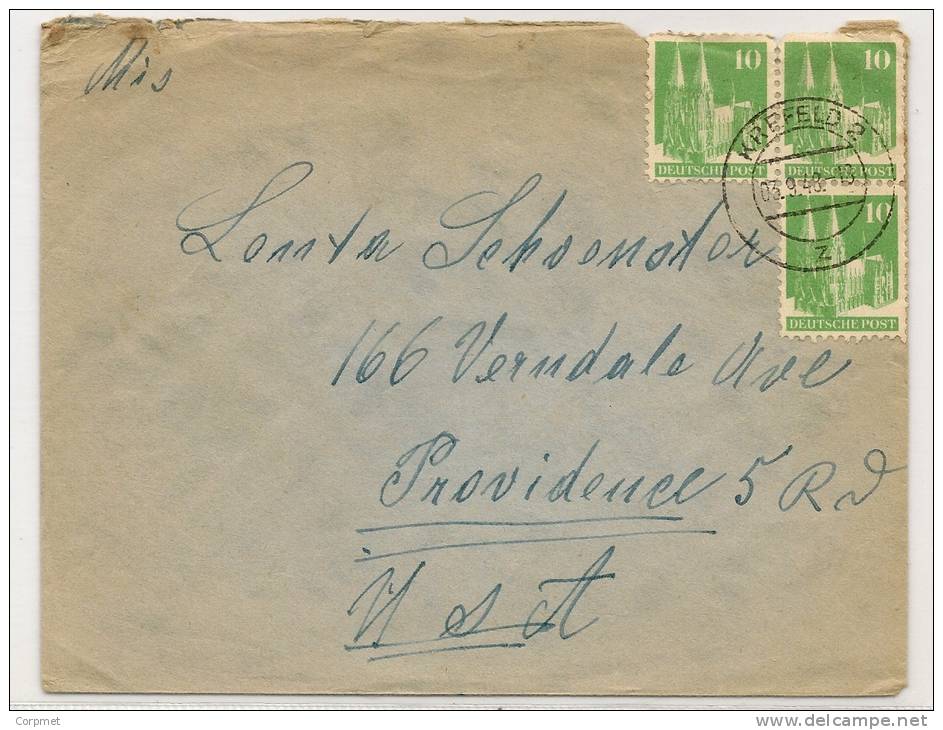 Mis
10
10
DEUTSCHE POST
DEUTSCHE POST
KREFELD 2
03.9.48.-18
z
10
DEUTSCHE POST
Lonta Schoenster
166 Verndale Ave
Providence 5 R d
U S A
Corpmet
www.delcampe.net